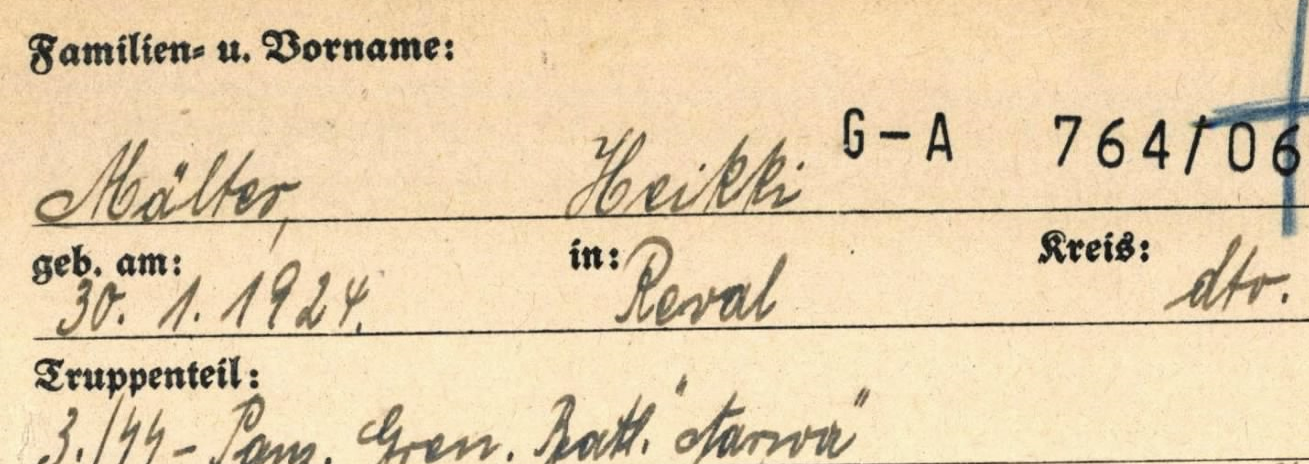 Familien- u. Vorname:
G-A 764/06
Mälter, Heikki
geb. am: in: Kreis:
30. 1. 1924. Reval dto.
Truppenteil:
3./SS- Panz. Gren. Batl. "Narwa"